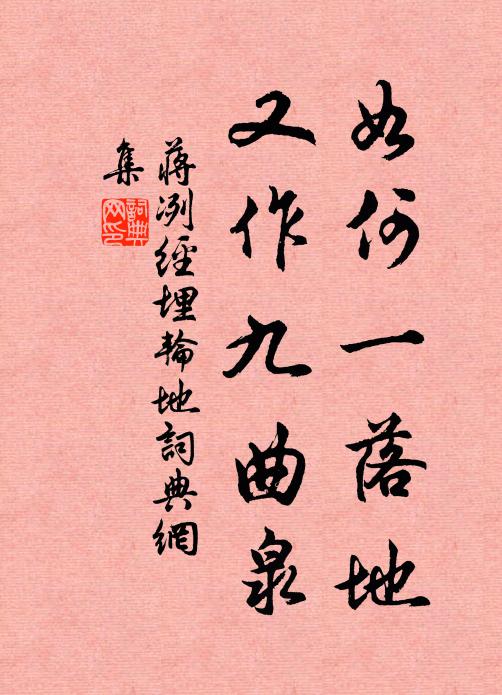 如何一落地
又作九曲泉
蔣冽經埋輪地詞典網
集
詞典
网印